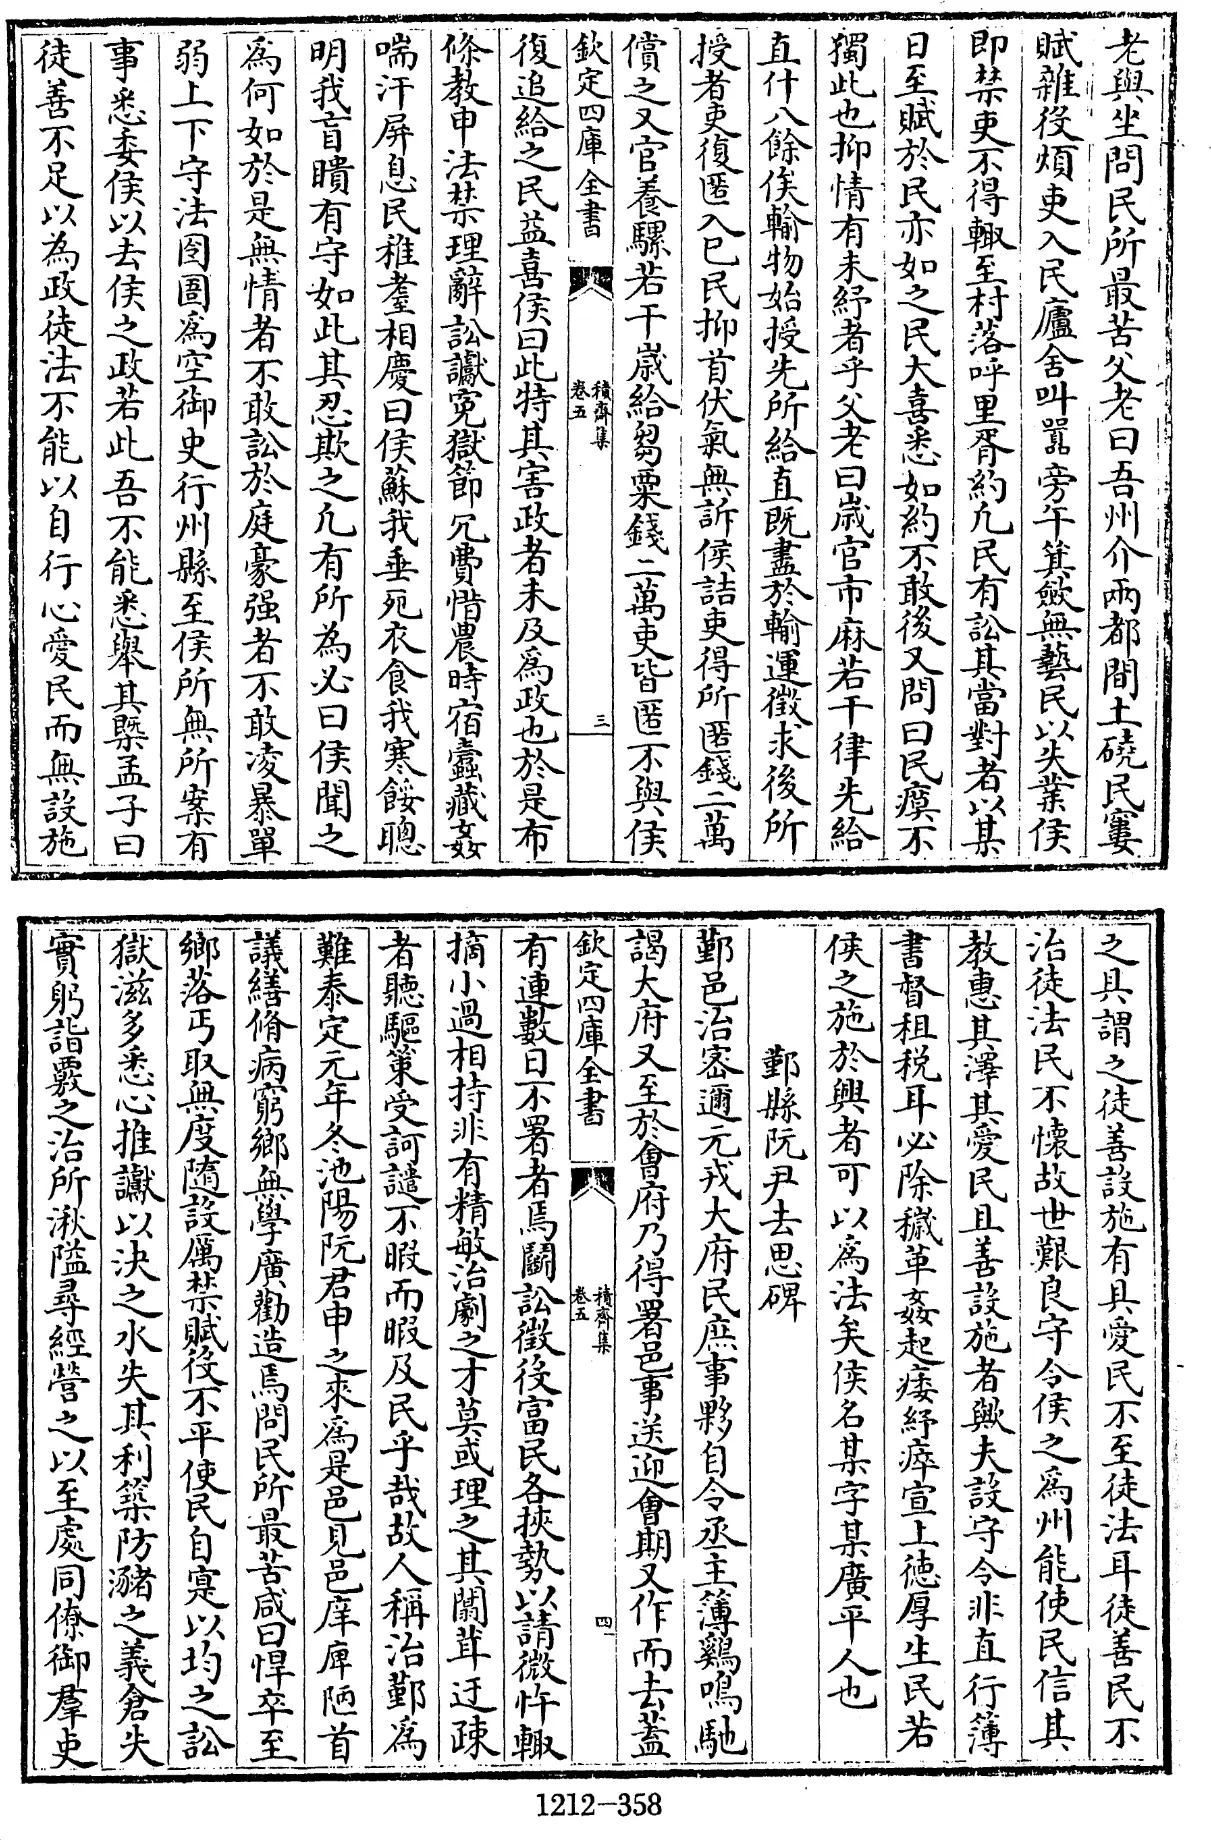 老與坐問民所最苦父老曰吾州介兩都間土磽民窶
賦雜役煩吏入民廬舍叫嚚旁午箕斂無藝民以失業侯
即禁吏不得輙至村落呼里胥約凡民有訟其當對者以某
日至賦於民亦如之民大喜悉如約不敢後又問曰民瘼不
獨此也抑情有未紓者乎父老曰歳官市麻若干律先給
直什八餘俟輸物始授先所給直既盡於輸運徵求後所
授者吏復匿入已民抑首伏氣無訴侯詰吏得所匿錢二萬
償之又官養騾若干歳給芻粟錢二萬吏皆匿不與侯
欽定四庫全書
積齋集
卷五
三
復追給之民益喜侯曰此特其害政者未及爲政也於是布
條教申法禁理辭訟讞寃獄節冗費惜農時宿蠧藏姦
喘汗屏息民稚耋相慶曰侯蘇我垂死衣食我寒餒聰
明我盲瞶有守如此其忍欺之凢有所為必曰侯聞之
爲何如於是無情者不敢訟於庭豪强者不敢凌暴單
弱上下守法囹圄爲空御史行州縣至侯所無所案有
事悉委侯以去侯之政若此吾不能悉舉其槩孟子曰
徒善不足以為政徒法不能以自行心愛民而無設施
之具謂之徒善設施有具愛民不至徒法耳徒善民不
治徒法民不懷故世艱良守令侯之爲州能使民信其
教惠其澤其愛民且善設施者歟夫設守令非直行簿
書督租税耳必除穢革姦起痿紓瘁宣上德厚生民若
侯之施於興者可以爲法矣侯名某字某廣平人也
鄞縣阮尹去思碑
鄞邑治密邇元戎大府民庶事夥自令丞主簿鷄鳴馳
謁大府又至於會府乃得署邑事送迎會期又作而去蓋
欽定四庫全書
積齋集
卷五
四
有連數日不署者焉鬭訟徵役富民各挾勢以請微忤輙
摘小過相持非有精敏治劇之才莫或理之其闒茸迂疎
者聽驅策受訶譴不暇而暇及民乎哉故人稱治鄞爲
難泰定元年冬池陽阮君申之來爲是邑見邑庠庳陋首
議繕脩病窮鄉無學廣勸造焉問民所最苦咸曰悍卒至
鄉落丐取無度隨設厲禁賦役不平使民自寔以均之訟
獄滋多悉心推讞以決之水失其利築防瀦之義倉失
實躬詣覈之治所湫隘尋經營之以至處同僚御羣吏
1212-358